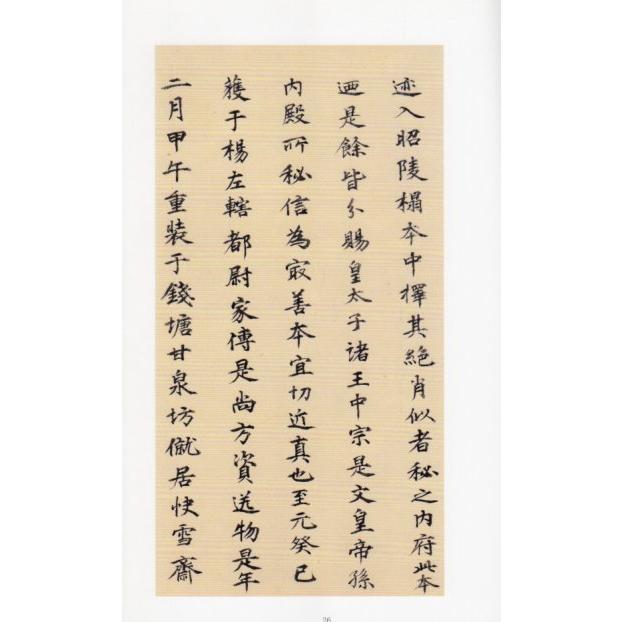 迹入昭陵榻本中擇其絶肖似者秘之内府此本
迺是餘皆分賜皇太子諸王中宗是文皇帝孫
内殿所秘信為㝡善本宜切近真也至元癸巳
獲于楊左轄都尉家傳是尚方資送物是年
二月甲午重裝于錢塘甘泉坊僦居快雪齋
26